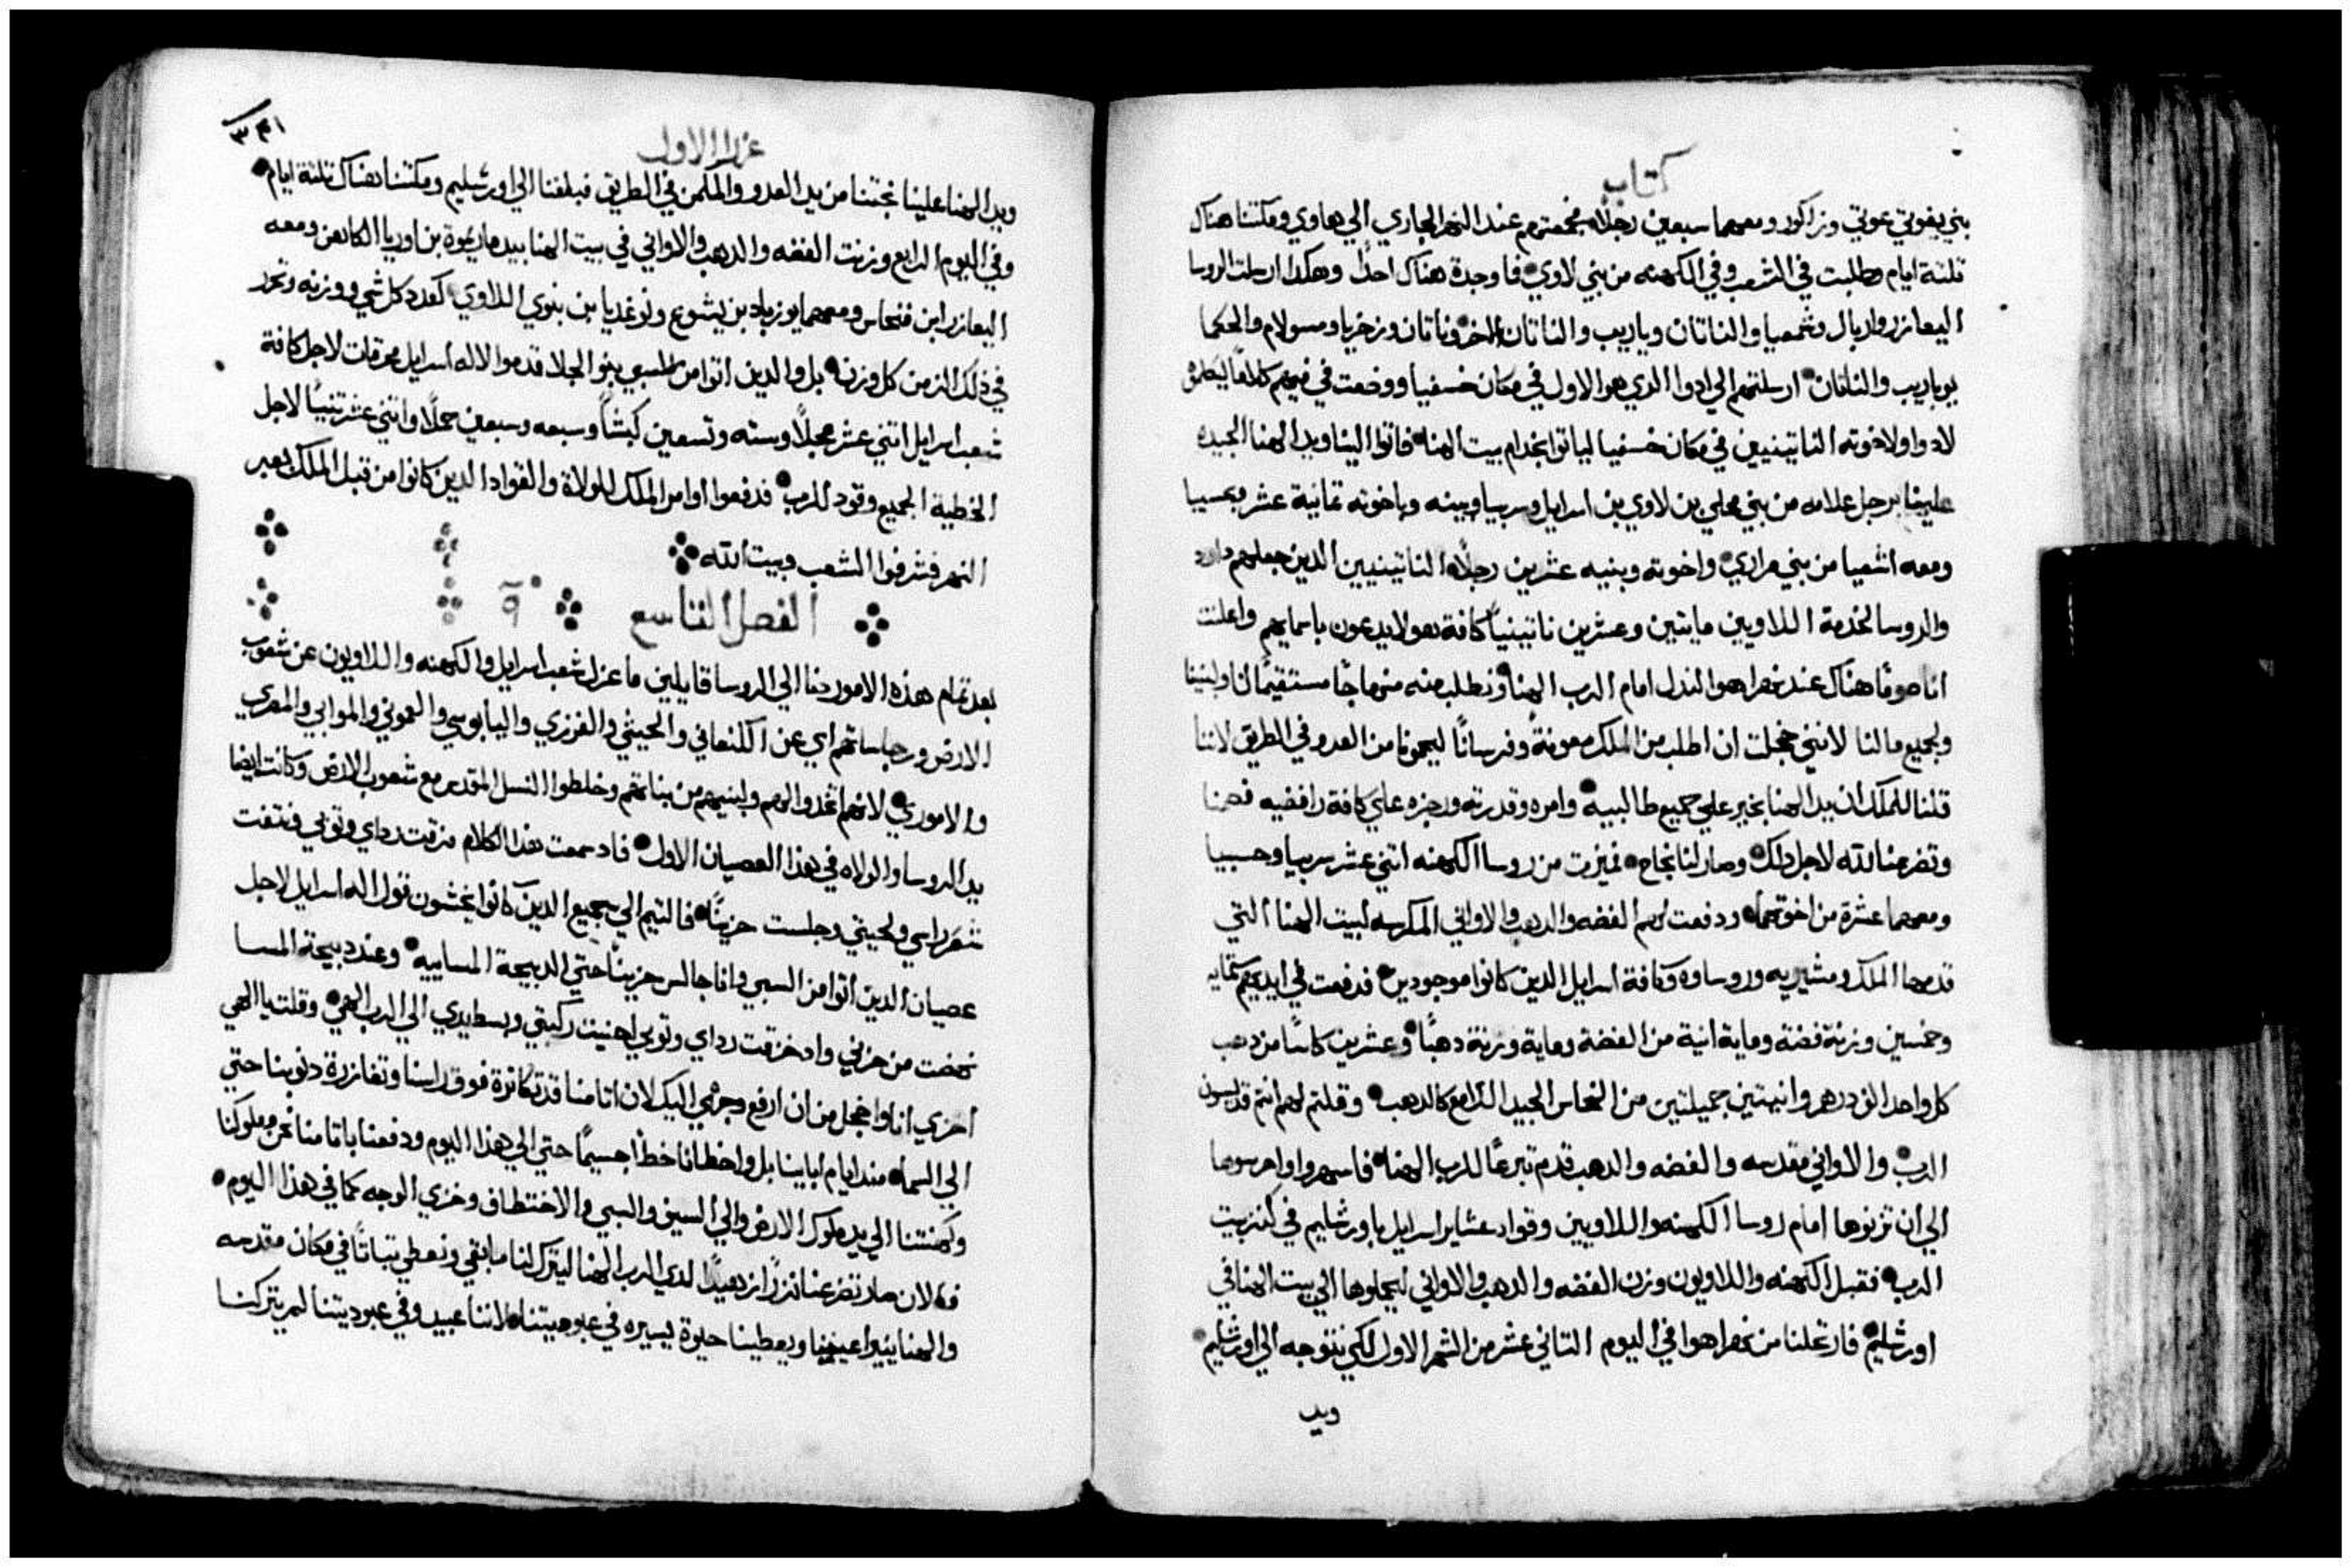 كتاب
بني يغوتي عوتي وزاكور ومعهما سبعين رجلاً فجمعتهم عند النهر الجاري الي هاوي ومكتنا هناك
تلتة ايام وطلبت في الشعب وفي الكهنه من بني لاوي فما وجدة هناك احداً وهكدا ارسلت الروسا
اليعازر واريال وشمعيا والناتان وياريب والناتان الاخر وناتان وزخريا ومسولام والحكما
يوياريب والناتان ارسلتهم الي ادوا الدي هو الاول في مكان خسفيا ووضعت في فمهم كلاماً
لادوا ولاخوته الناتينيين في مكان خسفيا لياتوا بخدام بيت الهنا فاتوا الينا ويد الهنا الجيده
علينا برجل علامه من بني محلي بن لاوي بن اسرايل وسربيا وبنيه وباخوته تمانية عشر وحسبيا
ومعه اشعيا من بني مراري واخوته وبنيه عشرين رجلاً الناتينيين الدين جعلهم داود
والروسا لخدمة اللاويين مايتين وعشرين ناتينياً كافة هولا يدعون باسمايهم واعلنت
انا صوماً هناك عند نهر اهوا لنتدلل امام الرب الهنا ونطلب منه منهاجاً مستقيماً لنا ولبنينا
ولجميع مالنا لانني خجلت ان اطلب من الملك معونة وفرساناً ليحمونا من العدو في الطريق لاننا
قلنا للملك ان يد الهنا بخير علي جميع طالبيه وامره وقدرته ورجزه علي كافة رافضيه فصمنا
وتضرعنا لله لاجل دلك وصار لنا نجاح فميزت من روسا الكهنه اتني عشر سربيا وحسبيا
ومعهما عشرة من اخوتهما ودفعت لهم الفضه والدهب والاواني المكرسه لبيت الهنا التي
قدمها الملك ومشيريه وروساوه وكافة اسرايل الدين كانوا موجودين فدفعت في ايديهم ستمايه
وخمسين وزنة فضة وماية انية من الفضة وماية وزنة دهباً وعشرين كاساً من دهب
كل واحد الف درهم وانيتين جميلتين من النحاس الجيد اللامع كالدهب وقلت لهم انتم قديسون
الرب والاواني مقدسه والفضه والدهب قدم تبرعاً للرب الهنا فاسهروا واحرسوها
الي ان تزنوها امام روسا الكهنه واللاويين وقواد عشاير اسرايل باورشليم في كنز بيت
الرب فقبل الكهنه واللاويون وزن الفضه والدهب والاواني ليحملوها الي بيت الهنا في
اورشليم فارتحلنا من نهر اهوا في اليوم التاني عشر من الشهر الاول لكي نتوجه الي اورشليم
ويد
عزرا الاول
٣٤١
ويد الهنا علينا نجتنا من يد العدو والمكمن في الطريق فبلغنا الي اورشليم ومكتنا هناك تلتة ايام
وفي اليوم الرابع وزنت الفضه والدهب والاواني في بيت الهنا بيد ماريموة بن اوريا الكاهن ومعه
اليعازر ابن فنحاس ومعهما يوزباد بن يشوع ونوغديا بن بنوي اللاوي كعدد كل شي ووزنه وتحرر
في ذلك الزمن كل وزنه بل والدين اتوا من السبي بنو الجلا قدموا لاله اسرايل محرقات لاجل كافة
شعب اسرايل اتني عشر عجلاً وسته وتسعين كبشاً وسبعه وسبعين حملاً واتني عشر تنياً لاجل
الخطية الجميع وقود للرب فدفعوا اوامر الملك للولاة والقواد الدين كانوا من قبل الملك بعبر
النهر فشرفوا الشعب وبيت الله
الفصل التاسع ٩
بعد تمام هذه الامور دنا الي الروسا قايلين ما عزل شعب اسرايل والكهنه واللاويون عن شعوب
الارض ورجاساتهم اي عن الكنعاني والحيثي والفرزي واليابوسي والعموني والموابي والمصري
والاموري لانهم اتخدوا لهم ولبنيهم من بناتهم وخلطوا النسل المقدس مع شعوب الارض وكانت ايضا
يد الروسا والولاه في هذا العصيان الاول فاد سمعت هذا الكلام مزقت رداي وتوبي ونتفت
شعر راسي ولحيتي وجلست حزيناً فالتيم الي جميع الدين كانوا يخشون قول اله اسرايل لاجل
عصيان الدين اتوا من السبي وانا جالس حزيناً حتي الدبيحة المساييه وعند دبيحة المسا
نهضت من حزني واد خرقت رداي وتوبي احنيت ركبتي وبسطت يدي الي الرب الهي وقلت يا الهي
اخزي انا واخجل من ان ارفع وجهي اليك لان اتامنا قد تكاترة فوق راسنا وتفازرة دنوبنا حتي
الي السما مند ايام ابايينا بل واخطانا خطاً جسيماً حتي الي هذا اليوم ودفعنا باتامنا نحن وملوكنا
وكهنتنا الي يد ملوك الارض والي السيف والسبي والاختطاف وخزي الوجه كما في هذا اليوم
فالان صار تضرعنا نزراً زهيداً لدي الرب الهنا ليترك لنا ما بقي ونعطي تباتاً في مكان مقدسه
والهنا ينير اعيننا ويعطينا حيوة يسيره في عبوديتنا لاننا عبيد وفي عبوديتنا لم يتركنا